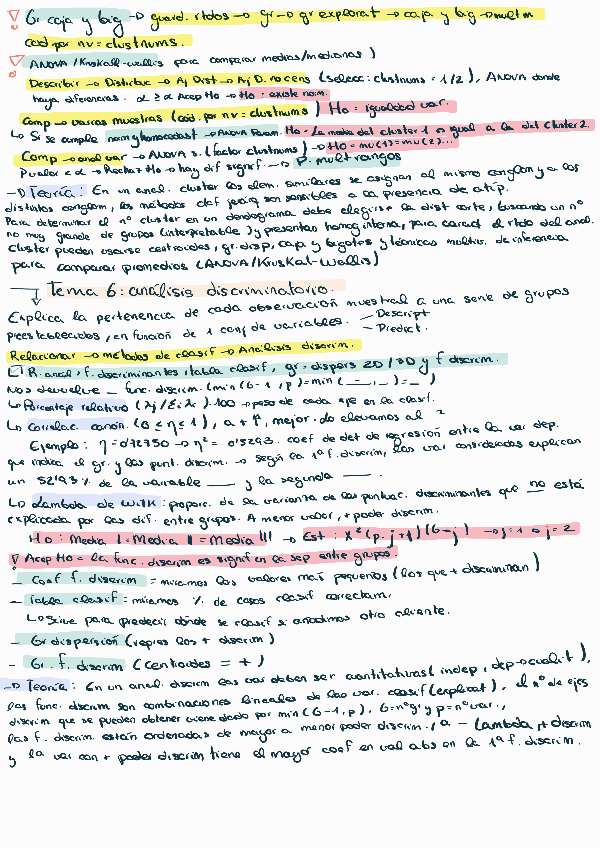 Gr caja y big → guard. rtdos → gr → gr explorat → caja y big → multm
cod por nv = clustnums.
ANOVA / Kruskall-wallis para comparar medias/medianas)
Describir → Distribuc → Aj Dist → Aj D. no cens (selecc: clustnums = 1/2), ANOVA donde
haya diferencias. α ≥ α Acep Ho → Ho: existe norm.
Comp → varias muestras (cod. por nv = clustnums) Ho = igualdad var.
↳ Si se cumple norm y homocedast → ANOVA Param. Ho = La media del cluster 1 es igual a la del cluster 2.
Comp → anal var → ANOVA s. (factor clustnums) → Ho = mu(1) = mu(2)...
Pvalor < α → Rechaz Ho → hay dif signif. → P. multrangos
→ Teoría: En un anal. cluster los elem. similares se asignan al mismo conglom y a los
distintos conglom, los métodos del jerárq son sensibles a la presencia de atíp.
Para determinar el nº cluster en un dendograma debe elegirse la dist corte, buscando un nº
no muy grande de grupos (interpretable) y presentan homog interna, para caract el rtdo del anal.
cluster pueden usarse centroides, gr. disp, caja y bigotes y técnicas multiv. de inferencia
para comparar promedios (ANOVA/Kruskal-Wallis)
Tema 6: análisis discriminatorio.
Explica la pertenencia de cada observación muestral a una serie de grupos
preestablecidos, en función de 1 conj de variables. — Descript
— Predict.
Relacionar → métodos de clasif → Análisis discrim.
R. anal, f. discriminantes, tabla clasif, gr = dispers 2D / 3D y f discrim.
Nos devuelve _ func. discrim. (min (G-1, p) = min (_, _) = _)
↳ Porcentaje relativo (λj / Σi λi) · 100 → peso de cada eje en la clasif.
↳ Correlac canón. (0 ≤ η ≤ 1), a + ↑, mejor. lo elevamos al ²
Ejemplo: η = 0'72750 → η² = 0'5293. coef de det de regresión entre la var dep.
que indica el gr. y las punt. discrim. → según la 1ª f. discrim, las var consideradas explican
un 52'93 % de la variable ___ y la segunda ___.
↳ Lambda de Wilk: proporc. de la varianza de las puntuac. discriminantes que no está
explicada por las dif. entre grupos. A menor valor, + poder discrim.
Ho: Media I = Media II = Media III → Est: X² (p-j+1)(G-j) → j=1 o j=2
Acep Ho = la func. discrim es signif en la sep entre grupos.
- Coef f. discrim = miramos los valores más pequeños (los que + discriminan)
- Tabla clasif = miramos % de casos clasif correctam.
↳ Sirve para predecir dónde se clasif si añadimos otro cliente.
- Gr dispersión (repres los + discrim)
- Gr. f. discrim (centroides = +)
→ Teoría: En un anal. discrim las var deben ser cuantitativas (indep, dep → cualit),
las func. discrim son combinaciones lineales de las var. clasif (explicat), el nº de ejes
discrim que se pueden obtener viene dado por min (G-1, p), G = nº gr y p = nº var.,
las f. discrim. están ordenadas de mayor a menor poder discrim., a - lambda, + discrim
y la var con + poder discrim tiene el mayor coef en val abs en la 1ª f. discrim.